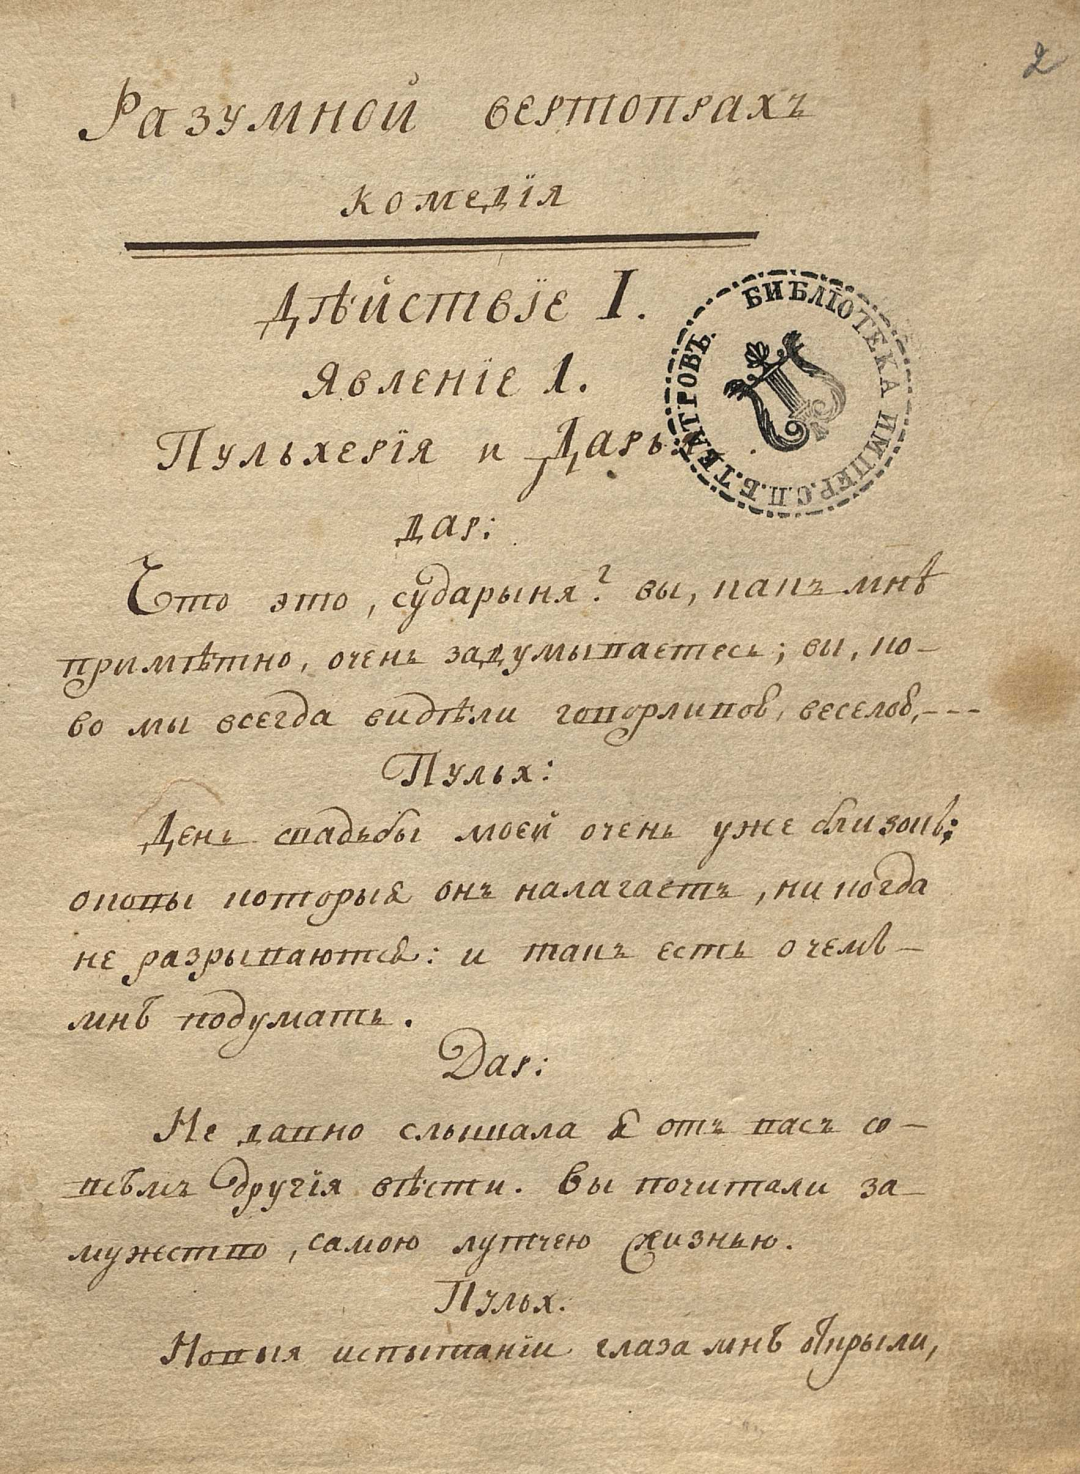 2
Разумной вертопрахъ
комедія
Дѣйствіе I.
Явленіе 1.
Пульхерія и Дарь.
БИБЛІОТЕКА ИМПЕР. С.П.Б. ТЕАТРОВЪ.
дар:
Что это, сударыня? вы, какъ мнѣ
примѣтно, очень задумываетесь; вы, ко-
во мы всегда видѣли говорливой, веселой,---
Пульх:
День свадьбы моей очень уже близокъ;
оковы которыя онъ налагаетъ, ни когда
не разрываются: и такъ есть о чемъ
мнѣ подумать.
Дар:
Не давно слышала я отъ васъ со-
всѣмъ другія вѣсти. вы почитали за-
мужство, самою лутчею жизнью.
Пульх.
Новыя испытаніи глаза мнѣ открыли,